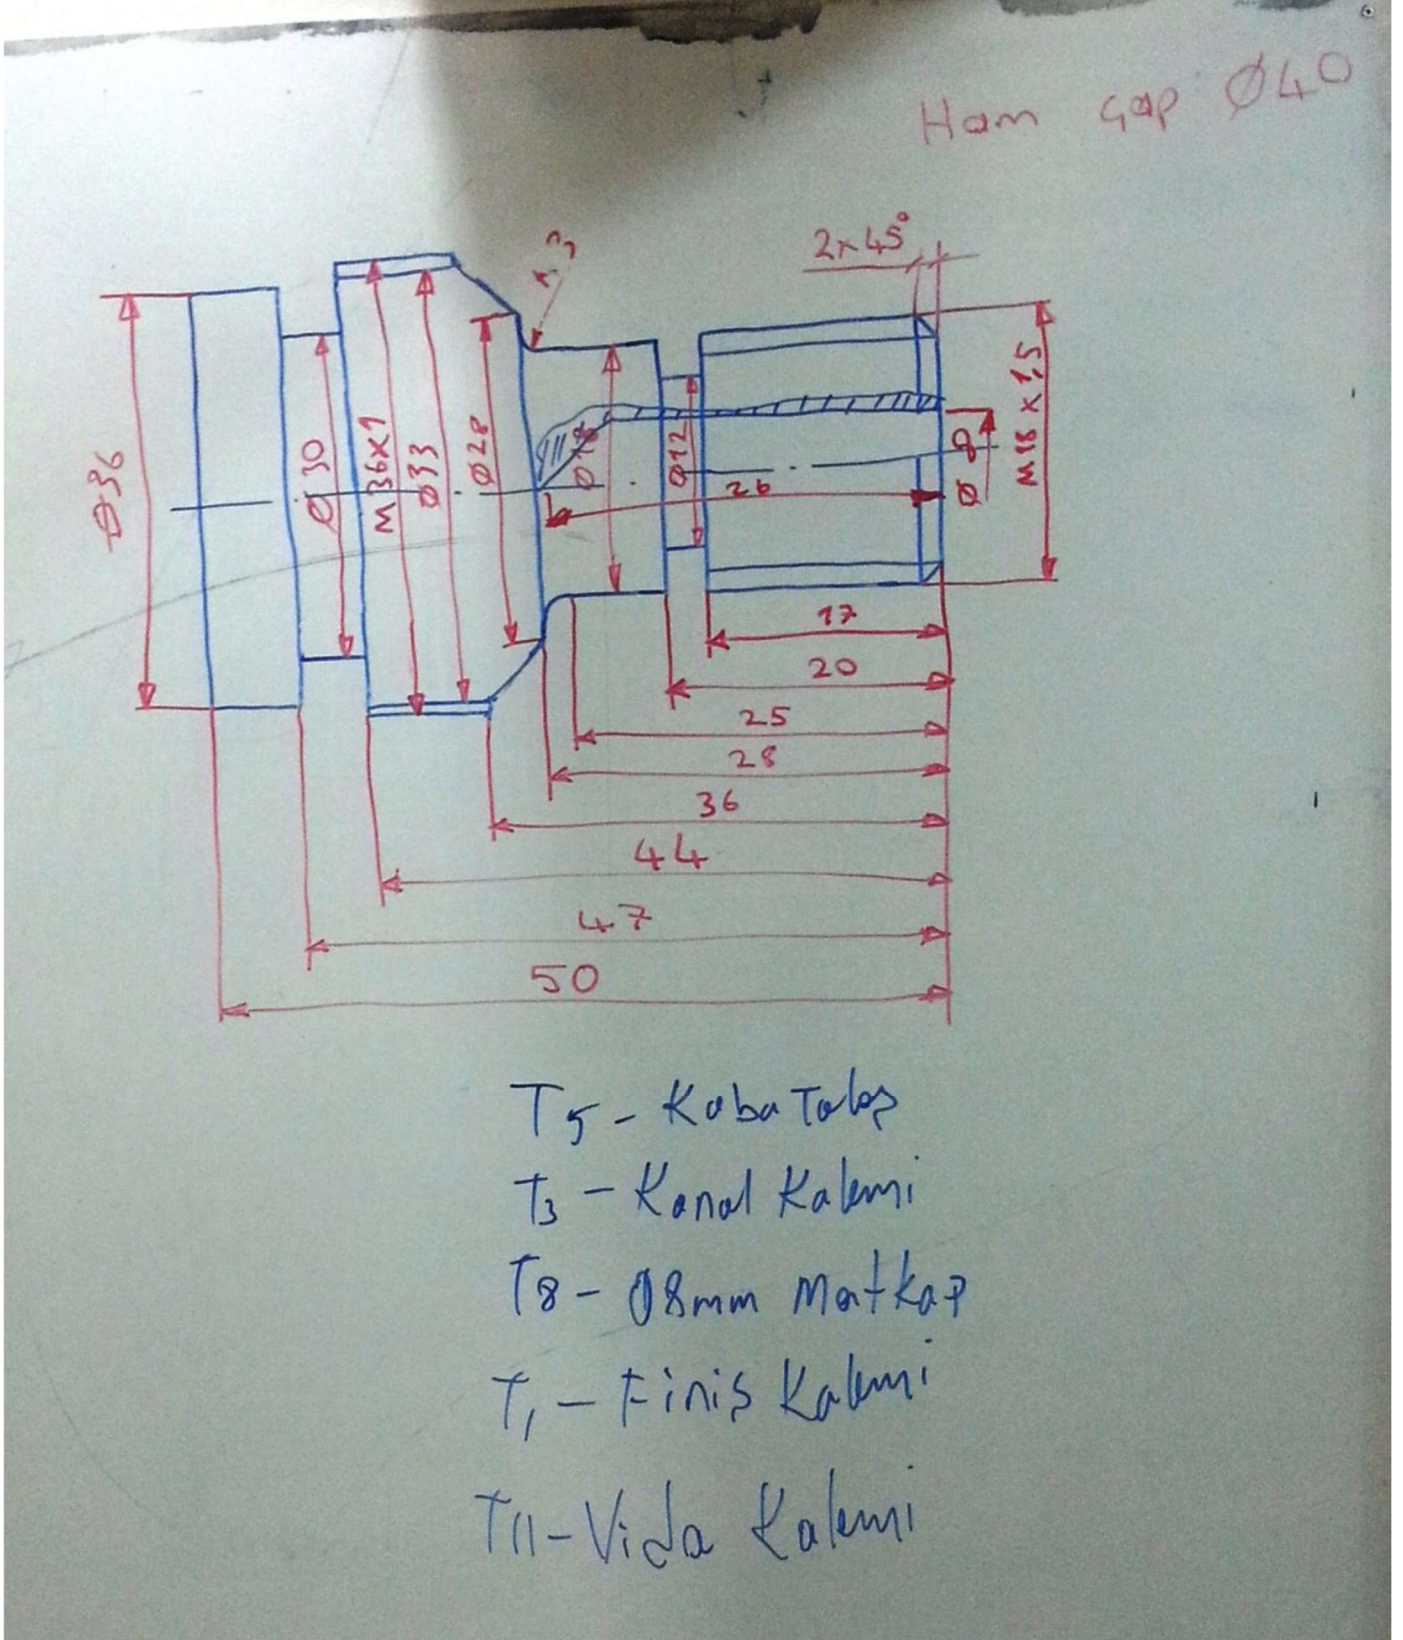 Ham çap Ø40
2x45°
Ø36
Ø30
M36x1
Ø33
Ø28
Ø12
26
Ø8
M18x1,5
17
20
25
28
36
44
47
50
T5 - Kaba Talaş
T3 - Kanal Kalemi
T8 - Ø8mm Matkap
T1 - Finiş Kalemi
T11 - Vida Kalemi